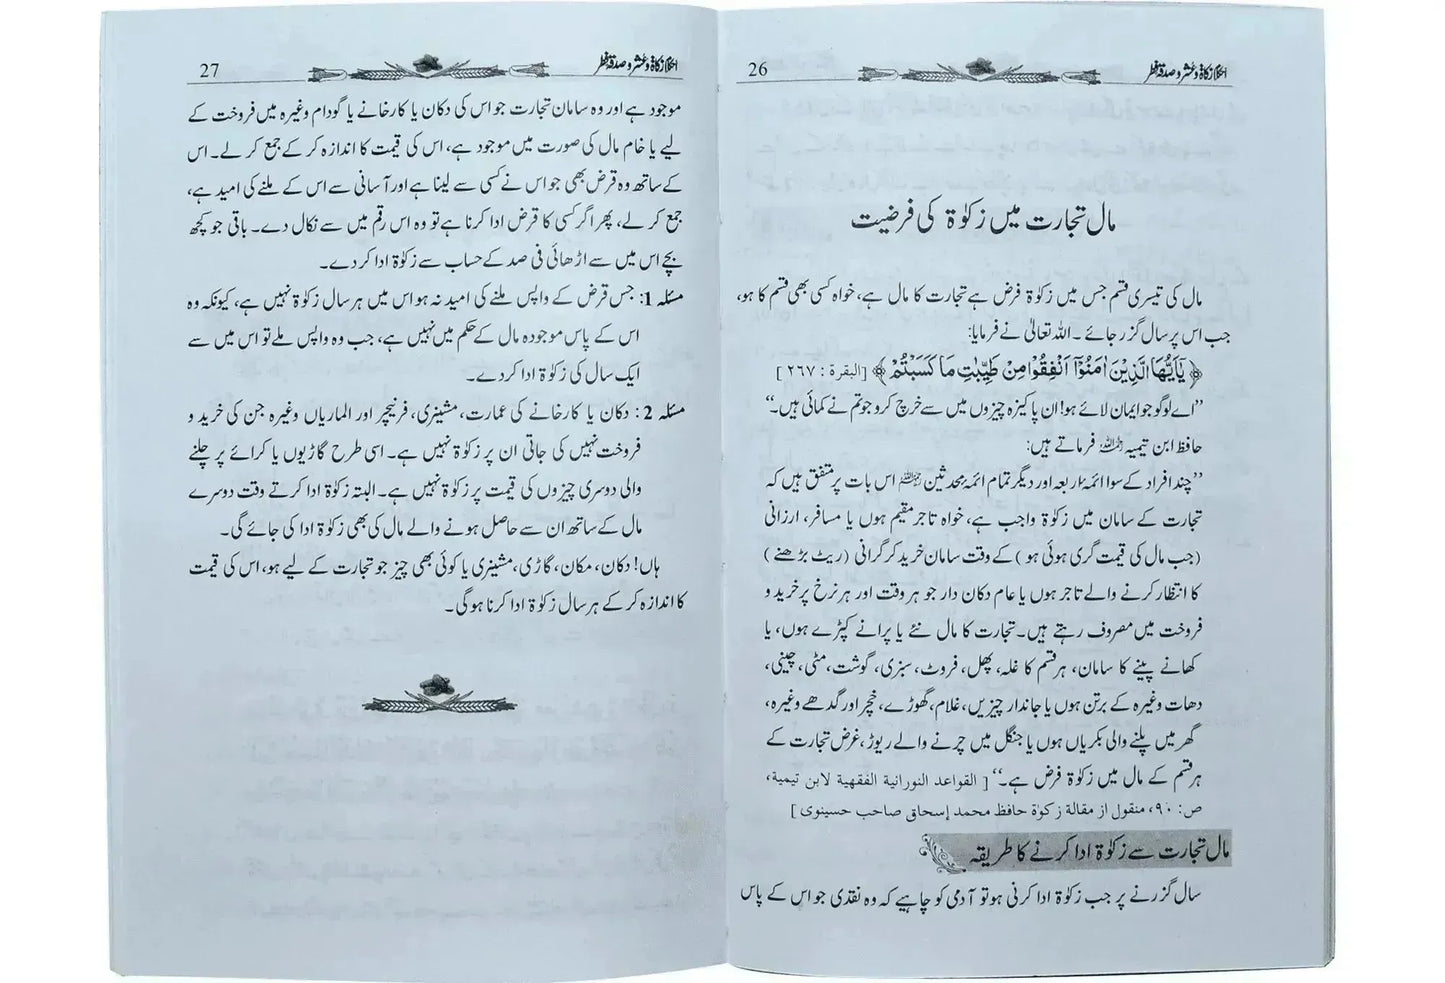 احکام زکاۃ و عشر و صدقہ فطر
26
مال تجارت میں زکوٰۃ کی فرضیت
مال کی تیسری قسم جس میں زکوٰۃ فرض ہے تجارت کا مال ہے، خواہ کسی بھی قسم کا ہو،
جب اس پر سال گزر جائے۔ اللہ تعالیٰ نے فرمایا:
﴿ یٰۤاَیُّهَا الَّذِیْنَ اٰمَنُوْۤا اَنْفِقُوْا مِنْ طَیِّبٰتِ مَا كَسَبْتُمْ ﴾ [البقرة : ٢٦٧ ]
’’اے لوگو جو ایمان لائے ہو! ان پاکیزہ چیزوں میں سے خرچ کرو جو تم نے کمائی ہیں۔‘‘
حافظ ابن تیمیہ رحمہ اللہ فرماتے ہیں:
’’چند افراد کے سوا ائمۂ اربعہ اور دیگر تمام ائمۂ محدثین رحمہم اللہ اس بات پر متفق ہیں کہ
تجارت کے سامان میں زکوٰۃ واجب ہے، خواہ تاجر مقیم ہوں یا مسافر، ارزانی
(جب مال کی قیمت گری ہوئی ہو ) کے وقت سامان خرید کر گرانی (ریٹ بڑھنے )
کا انتظار کرنے والے تاجر ہوں یا عام دکان دار جو ہر وقت اور ہر نرخ پر خرید و
فروخت میں مصروف رہتے ہیں۔ تجارت کا مال نئے یا پرانے کپڑے ہوں، یا
کھانے پینے کا سامان، ہر قسم کا غلہ، پھل، فروٹ، سبزی، گوشت، مٹی، چینی،
دھات وغیرہ کے برتن ہوں یا جاندار چیزیں، غلام، گھوڑے، خچر اور گدھے وغیرہ،
گھر میں پلنے والی بکریاں ہوں یا جنگل میں چرنے والے ریوڑ، غرض تجارت کے
ہر قسم کے مال میں زکوٰۃ فرض ہے۔‘‘ [ القواعد النورانیة الفقهیة لابن تیمیة،
ص : ٩٠، منقول از مقالة زكوٰة حافظ محمد إسحاق صاحب حسینوی ]
مال تجارت سے زکوٰۃ ادا کرنے کا طریقہ
سال گزرنے پر جب زکوٰۃ ادا کرنی ہو تو آدمی کو چاہیے کہ وہ نقدی جو اس کے پاس
احکام زکاۃ و عشر و صدقہ فطر
27
موجود ہے اور وہ سامان تجارت جو اس کی دکان یا کارخانے یا گودام وغیرہ میں فروخت کے
لیے یا خام مال کی صورت میں موجود ہے، اس کی قیمت کا اندازہ کر کے جمع کر لے۔ اس
کے ساتھ وہ قرض بھی جو اس نے کسی سے لینا ہے اور آسانی سے اس کے ملنے کی امید ہے،
جمع کر لے، پھر اگر کسی کا قرض ادا کرنا ہے تو وہ اس رقم میں سے نکال دے۔ باقی جو کچھ
بچے اس میں سے اڑھائی فی صد کے حساب سے زکوٰۃ ادا کر دے۔
مسئلہ 1: جس قرض کے واپس ملنے کی امید نہ ہو اس میں ہر سال زکوٰۃ نہیں ہے، کیونکہ وہ
اس کے پاس موجودہ مال کے حکم میں نہیں ہے، جب وہ واپس ملے تو اس میں سے
ایک سال کی زکوٰۃ ادا کر دے۔
مسئلہ 2 : دکان یا کارخانے کی عمارت، مشینری، فرنیچر اور الماریاں وغیرہ جن کی خرید و
فروخت نہیں کی جاتی ان پر زکوٰۃ نہیں ہے۔ اسی طرح گاڑیوں یا کرائے پر چلنے
والی دوسری چیزوں کی قیمت پر زکوٰۃ نہیں ہے۔ البتہ زکوٰۃ ادا کرتے وقت دوسرے
مال کے ساتھ ان سے حاصل ہونے والے مال کی بھی زکوٰۃ ادا کی جائے گی۔
ہاں! دکان، مکان، گاڑی، مشینری یا کوئی بھی چیز جو تجارت کے لیے ہو، اس کی قیمت
کا اندازہ کر کے ہر سال زکوٰۃ ادا کرنا ہو گی۔